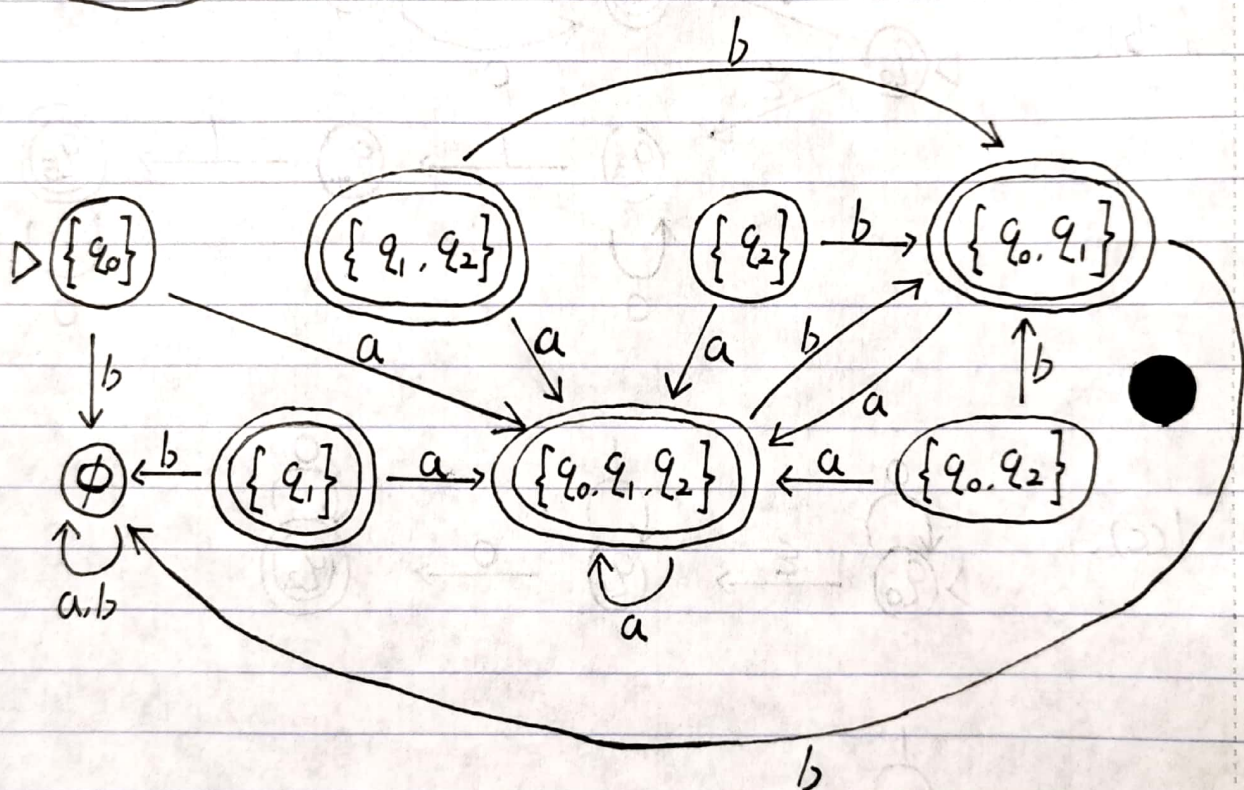 b
{q₀} {q₁, q₂} {q₂} b {q₀, q₁}
b a a a b a b
∅ b {q₁} a {q₀, q₁, q₂} a {q₀, q₂}
a,b a
b